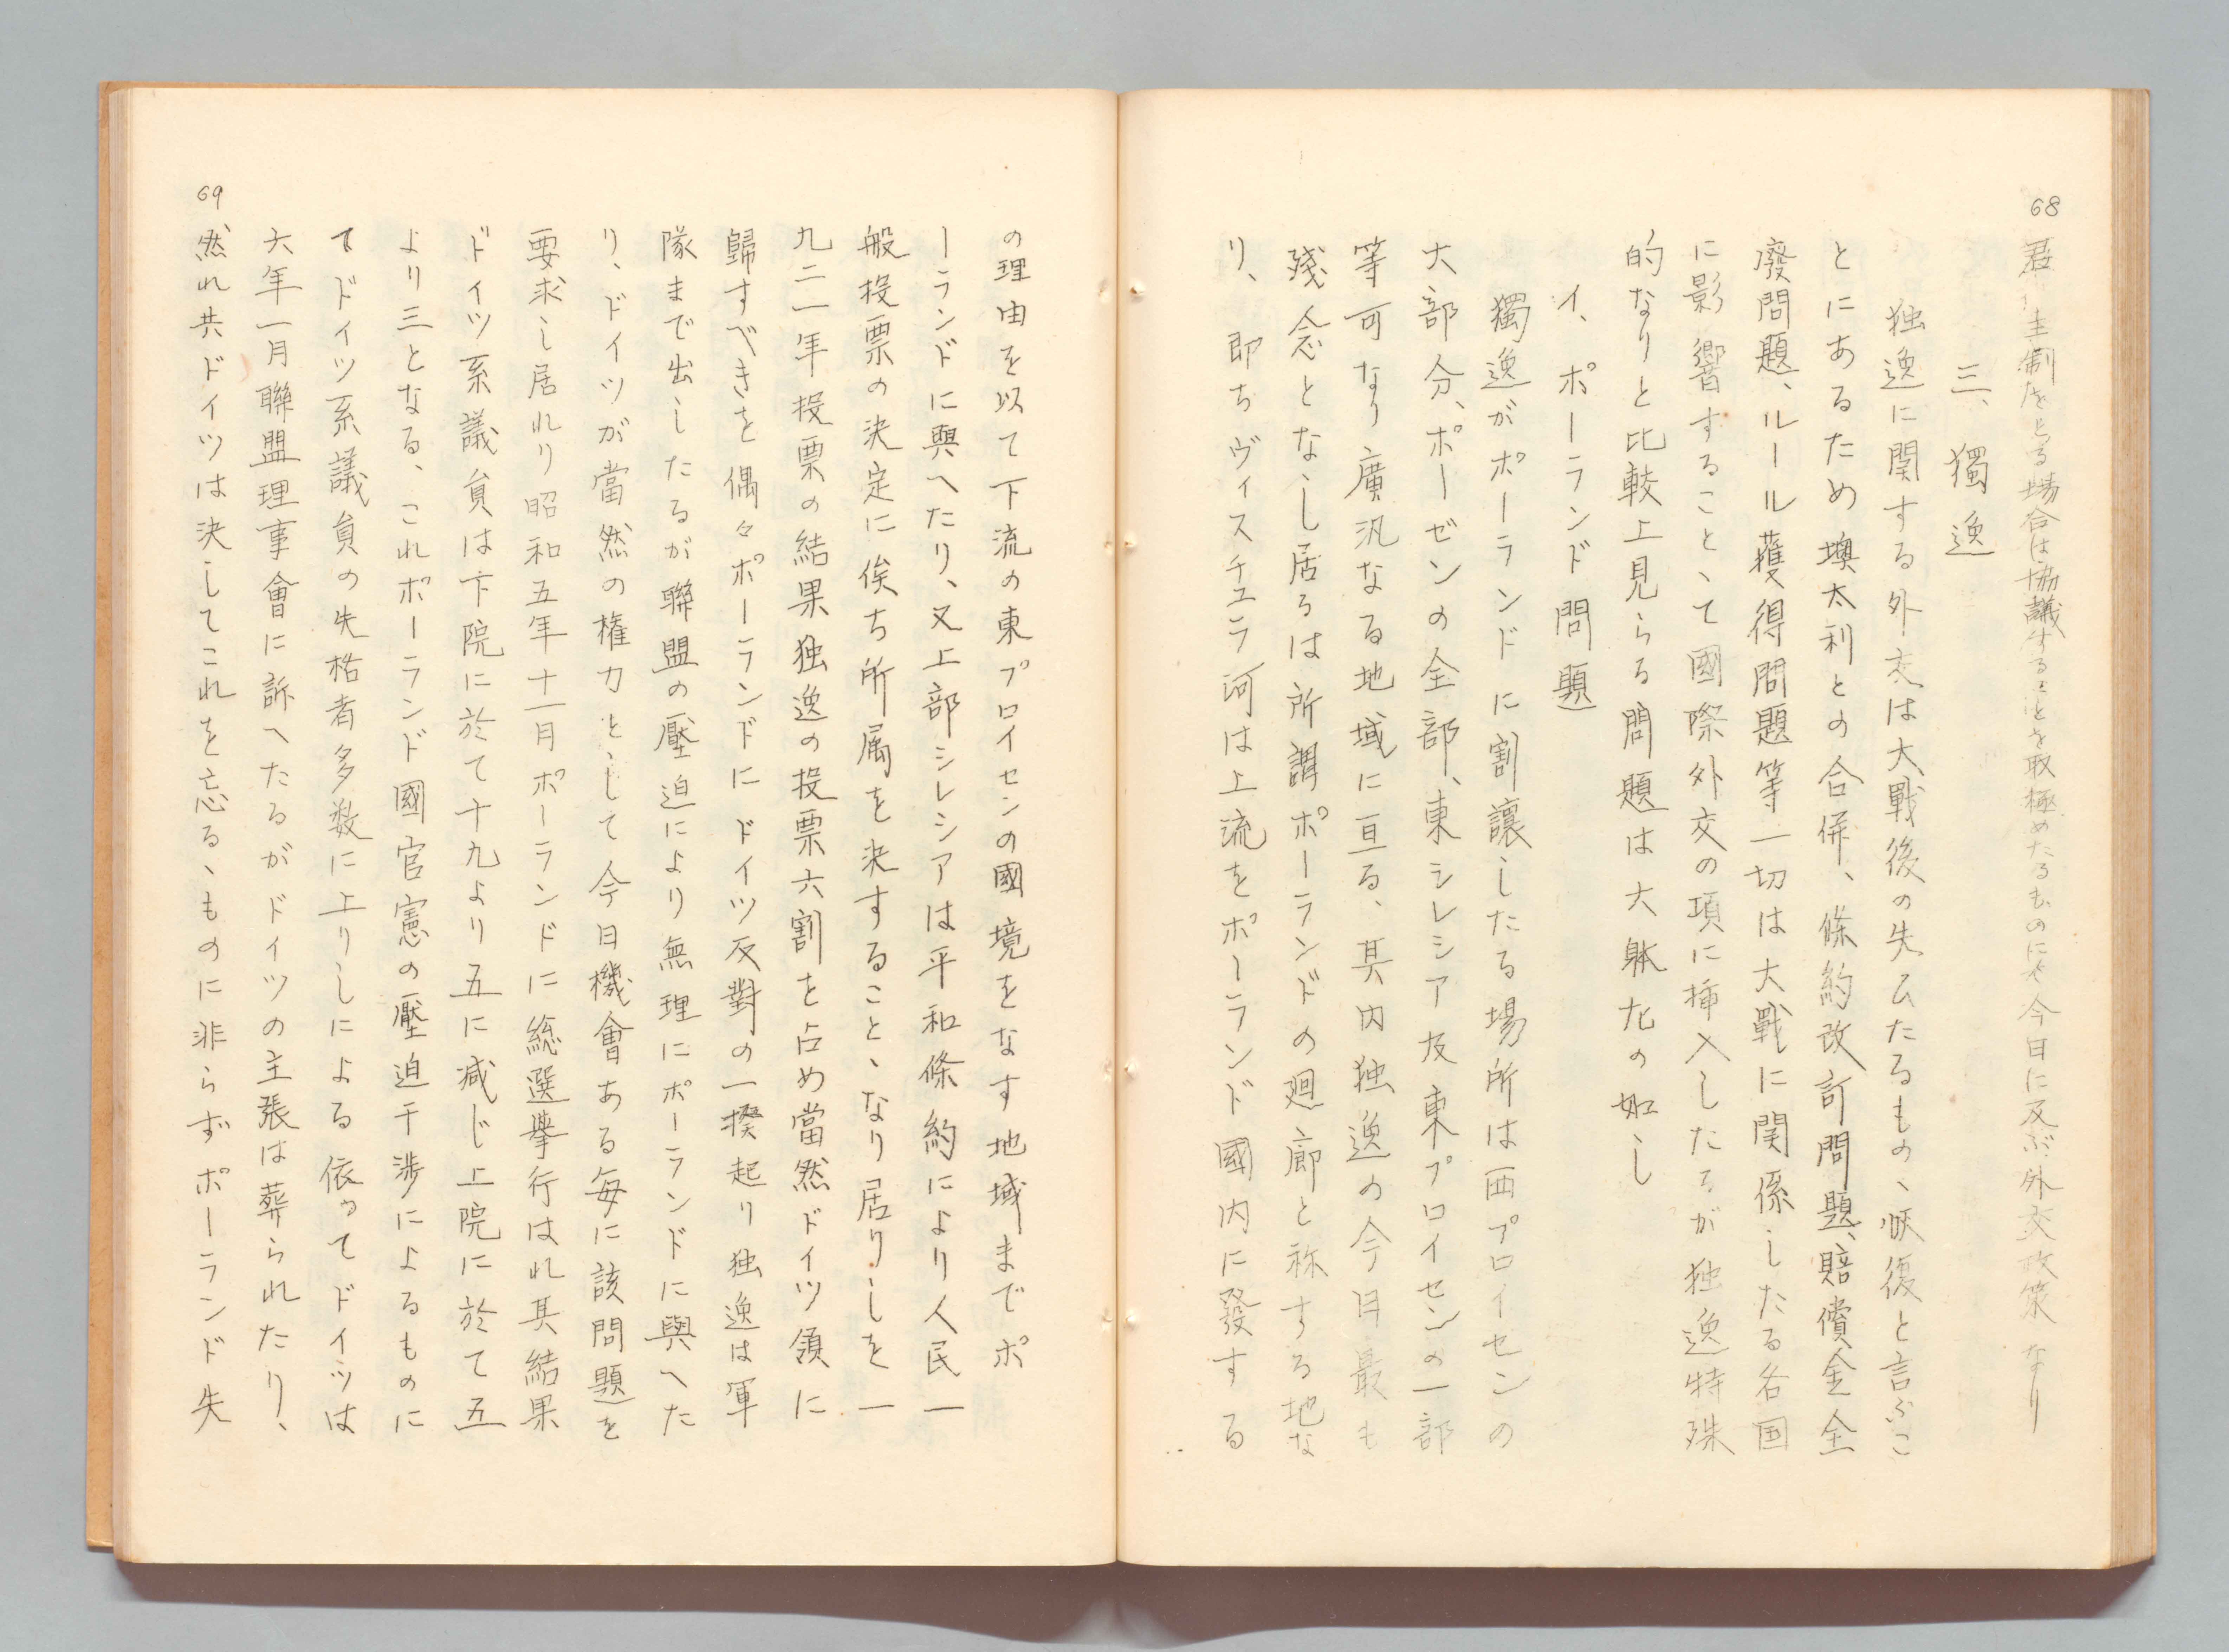 68
君主制をとる場合は協議することを取極めたるものにて今日に及ぶ外交政策なり
三、獨逸
独逸に関する外交は大戰後の失ひたるもの、恢復と言ふこ
とにあるため墺太利との合併、條約改訂問題、賠償金全
廢問題、ルール獲得問題等一切は大戰に関係したる各国
に影響すること、て國際外交の項に挿入したるが独逸特殊
的なりと比較上見らる問題は大躰尤の如し
イ、ポーランド問題
獨逸がポーランドに割讓したる場所は西プロイセンの
大部分、ポーゼンの全部、東シレシア及東プロイセンの一部
等可なり廣汎なる地域に亘る、其内独逸の今日最も
殘念となし居るは所謂ポーランドの廻廊と称する地な
り、即ちヴィスチュラ河は上流をポーランド國内に發する
の理由を以て下流の東プロイセンの國境をなす地域までポ
ーランドに與へたり、又上部シレシアは平和條約により人民一
般投票の決定に俟ち所属を決すること、なり居りしを一
九二一年投票の結果独逸の投票六割を占め當然ドイツ領に
歸すべきを偶々ポーランドにドイツ反對の一揆起り独逸は軍
隊まで出したるが聯盟の壓迫により無理にポーランドに與へた
り、ドイツが當然の権力として今日機會ある毎に該問題を
要求し居れり昭和五年十一月ポーランドに総選擧行はれ其結果
ドイツ系議員は下院に於て十九より五に減じ上院に於て五
より三となる、これポーランド國官憲の壓迫干渉によるものに
てドイツ系議員の失格者多数に上りしによる依つてドイツは
六年一月聯盟理事會に訴へたるがドイツの主張は葬られたり、
然れ共ドイツは決してこれを忘る、ものに非らずポーランド失
69